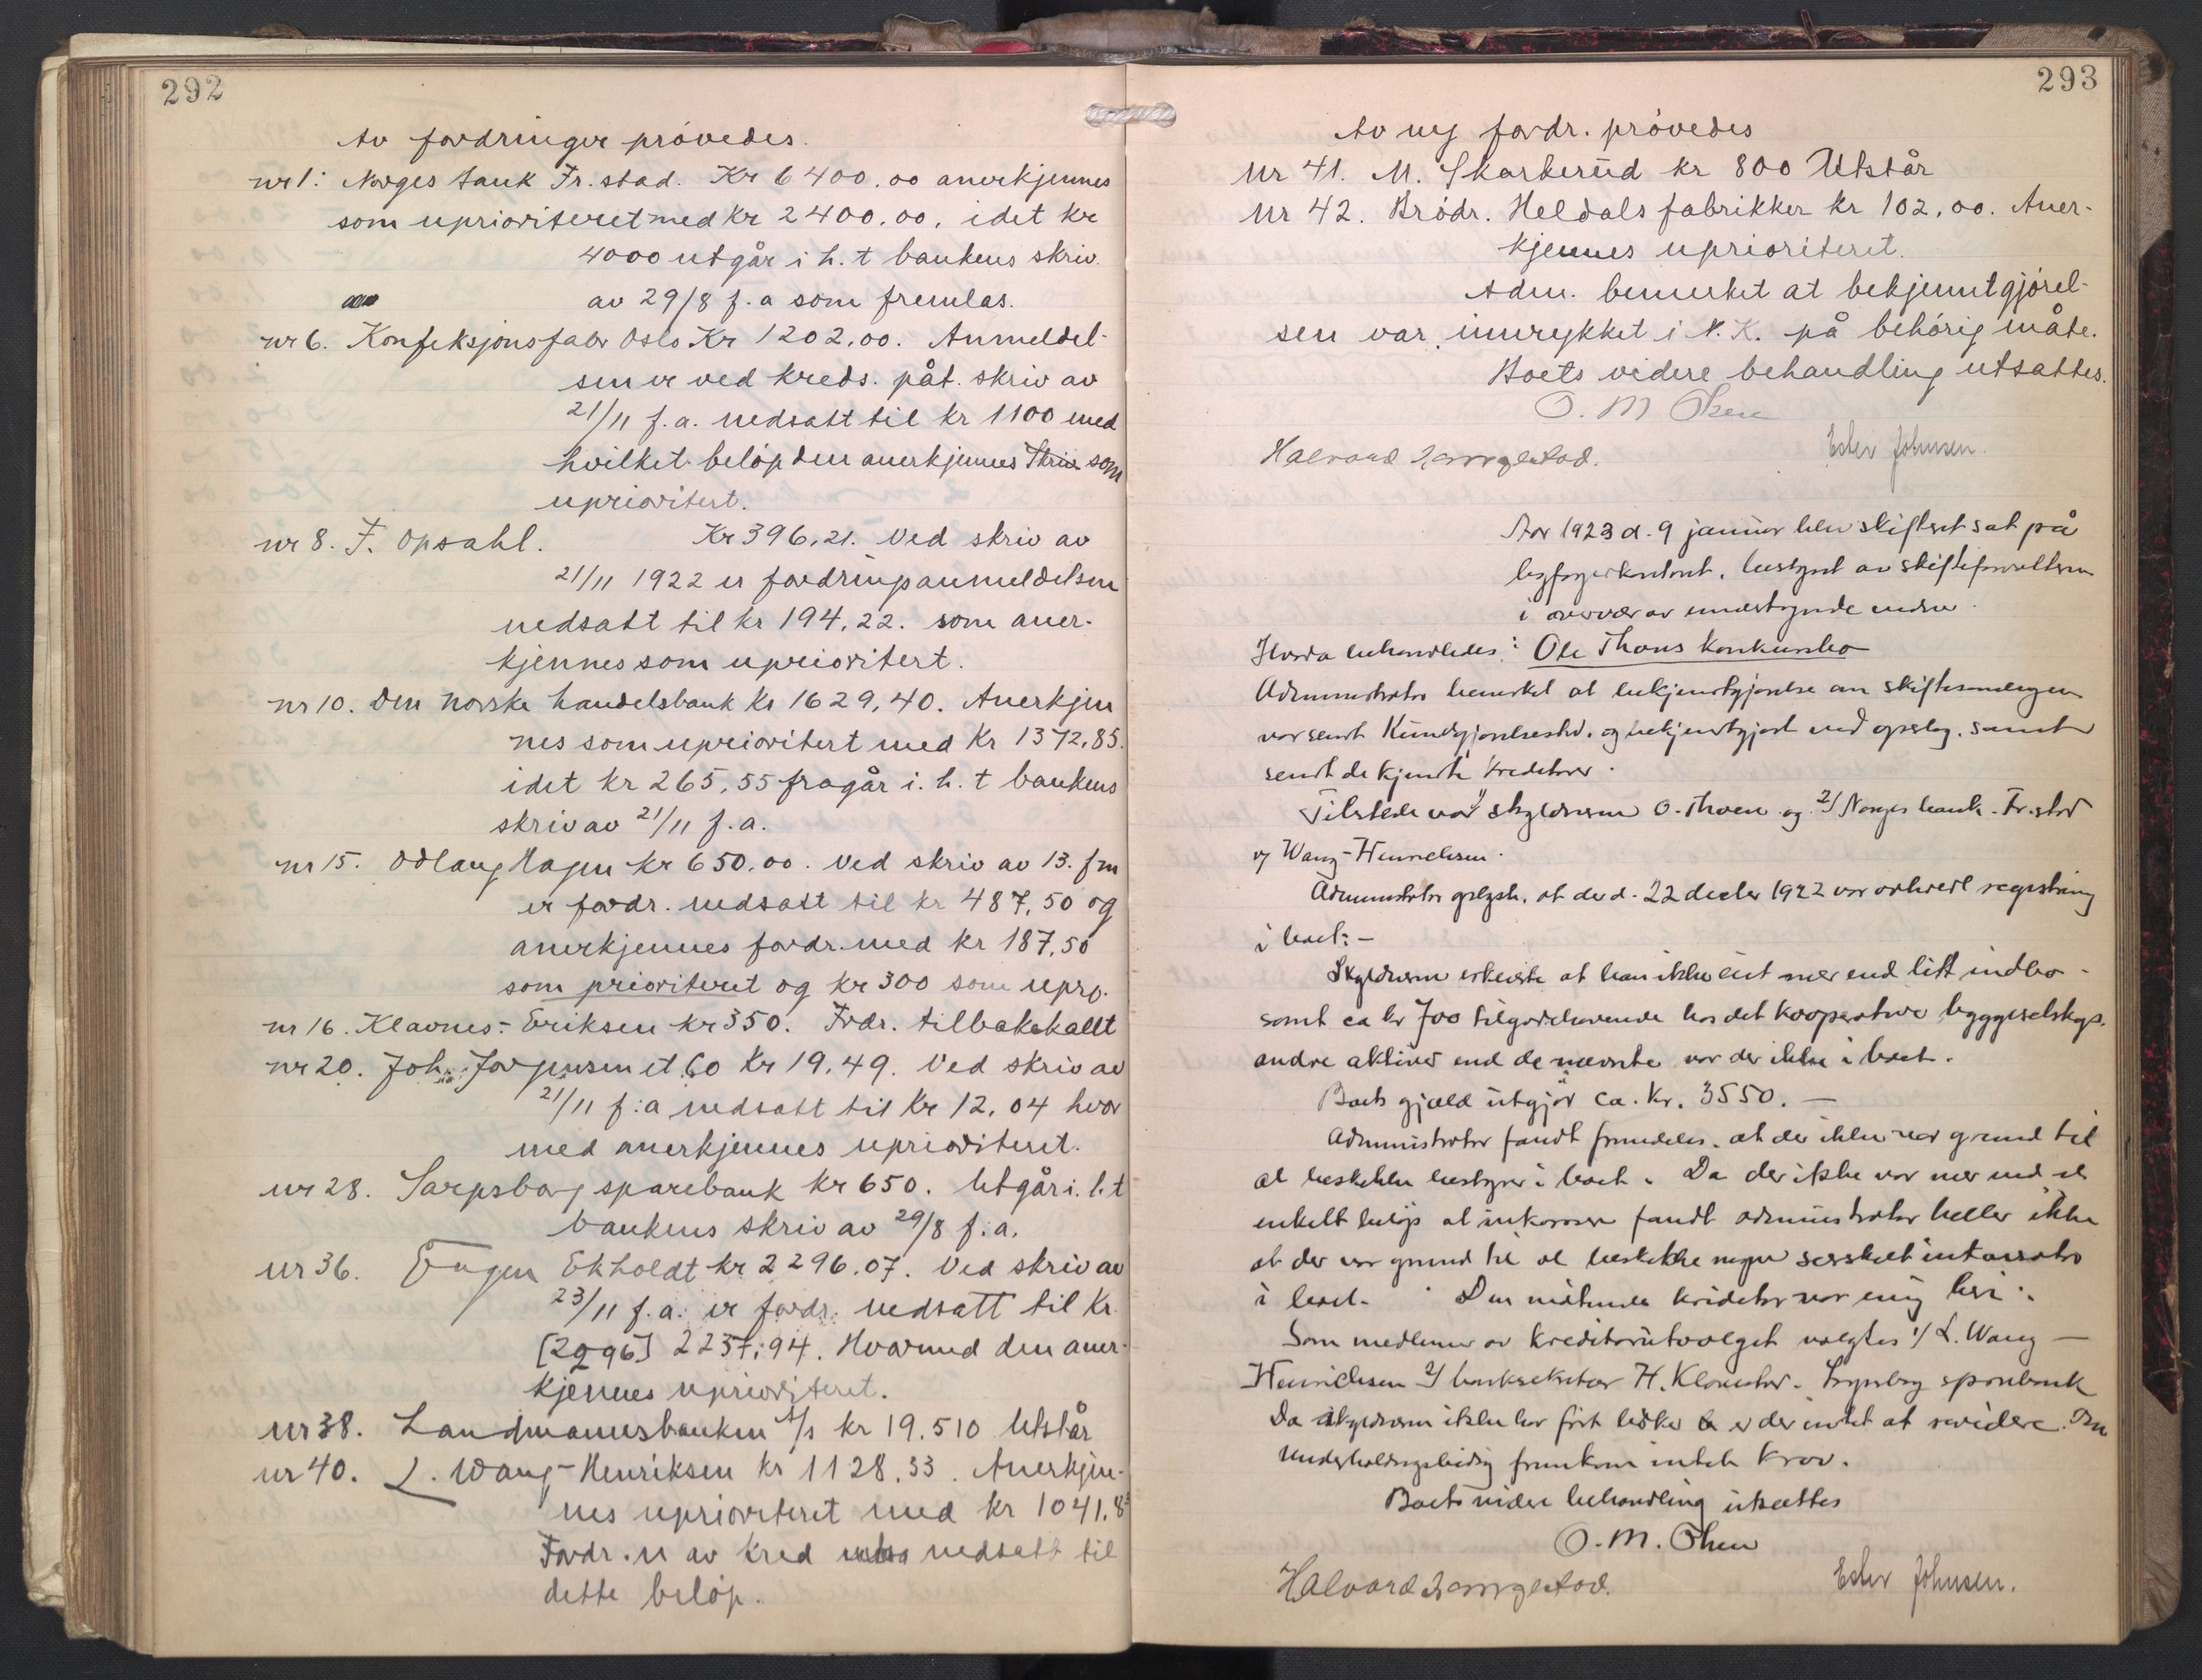 292
Av fordringer prøvedes.
nr 1: Norges bank Fr.stad. Kr 6400.00 anerkjennes
som uprioriteret med kr 2400.00, idet kr
4000 utgår i h. t bankens skriv.
av 29/8 f. a som fremlas.
nr 6. Konfeksjonsfabr Oslo Kr 1202,00. Anmeldel-
sen er ved kreds. påt. skriv av
21/11 f. a. nedsatt til kr 1100 med
hvilket beløp den anerkjennes som
uprioritert.
nr 8. F. Opsahl. Kr 396,21. Ved skriv av
21/11 1922 er fordringsanmeldelsen
nedsatt til kr 194,22. som aner-
kjennes som uprioritert.
nr 10. Den norske handelsbank Kr 1629,40. Anerkjen
nes som uprioritert med Kr 1372,85.
idet kr 265,55 fragår i. h. t bankens
skriv av 21/11 f. a.
nr 15. Odlaug Hagen kr 650.00. Ved skriv av 13. fm
er fordr. nedsatt til kr 487,50 og
anerkjennes fordr. med kr 187,50
som prioriteret og kr 300 som uprp.
nr 16. Klavnes-Eriksen kr 350. Fordr. tilbakekallt
nr 20. Joh. Jørgensen et Co Kr 19,49. Ved skriv av
21/11 f:a nedsatt til Kr 12,04 hvor
med anerkjennes uprioriteret.
nr 28. Sarpsborg sparebank kr 650. Utgår i. h. t
bankens skriv av 29/8 f. a.
nr 36. Eugen Ekholdt kr 2296.07. Ved skriv av
23/11 f. a. er fordr. nedsatt til Kr.
[2296] 2257,94. Hvormed den aner-
kjennes uprioriteret.
nr 38. Landmannsbanken A/s kr 19.510 Utstår
nr 40. L. Wang-Henriksen kr 1128.33. Anerkjen-
nes uprioriteret med kr 1041,8
Fordr. er av kred nedsatt til
dette beløp.
293
Av ny fordr. prøvedes
Nr 41. M. Skarkerud kr 800 Utstår
Nr 42. Brødr. Heldals fabrikker kr 102,00. Aner-
kjennes uprioriteret.
Adm. bemerket at bekjenntgjørel-
sen var innrykket i N. K. på behørig måte.
Boets videre behandling utsattes.
O. M Olsen
Halvard Ester Johnsen.
Aar 1923 d. 9 januar blev skifteret sat på
byfogedkontoret, bestyret av skifteforvalteren
i overvær av undertegnede vidner.
Hvorda behandledes: Ole Thons konkursbo
Administrator bemerket at bekjentgjørelse om skiftesamlingen
var sendt Kundgjørelsestid. og bekjentgjort ved opslag, samt
sendt de kjendte kreditorer.
Tilstede var 1/ skyldneren O. Thoen og 2/ Norges bank. Fr.stad
og Wang-Henrichsen.
Administrator oplyste, at der d. 22 decbr 1922 var avholdt registrering
i boet: -
Skyldneren erklærte at han ikke eiet mer end litt indbo -
samt ca kr 700 tilgodehavende hos det kooperative byggeselskap.
andre aktiver end de nævnte var der ikke i boet.
Boets gjæld utgjør ca. Kr. 3550. -
Administrator fandt fremdeles, at der ikke var grund til
at beskikke bestyrer i boet. Da der ikke var mer end et
enkelt beløp at inkassere fandt administrator heller ikke
at der var grund til at beskikke nogen særskilt inkassator
i boet. Den møtende kreditor var enig heri.
Som medlemmer av kreditorutvalget valgtes 1/ L. Wang -
Henrichsen 2/ banksekretær H. Sarpsborg sparebank
Da skyldneren ikke har ført bøker er der intet at revidere. Om
Underholdningsbidrag fremkom intet krav.
Boets videre behandling utsættes
O. M. Olsen
Halvard Ester Johnsen.